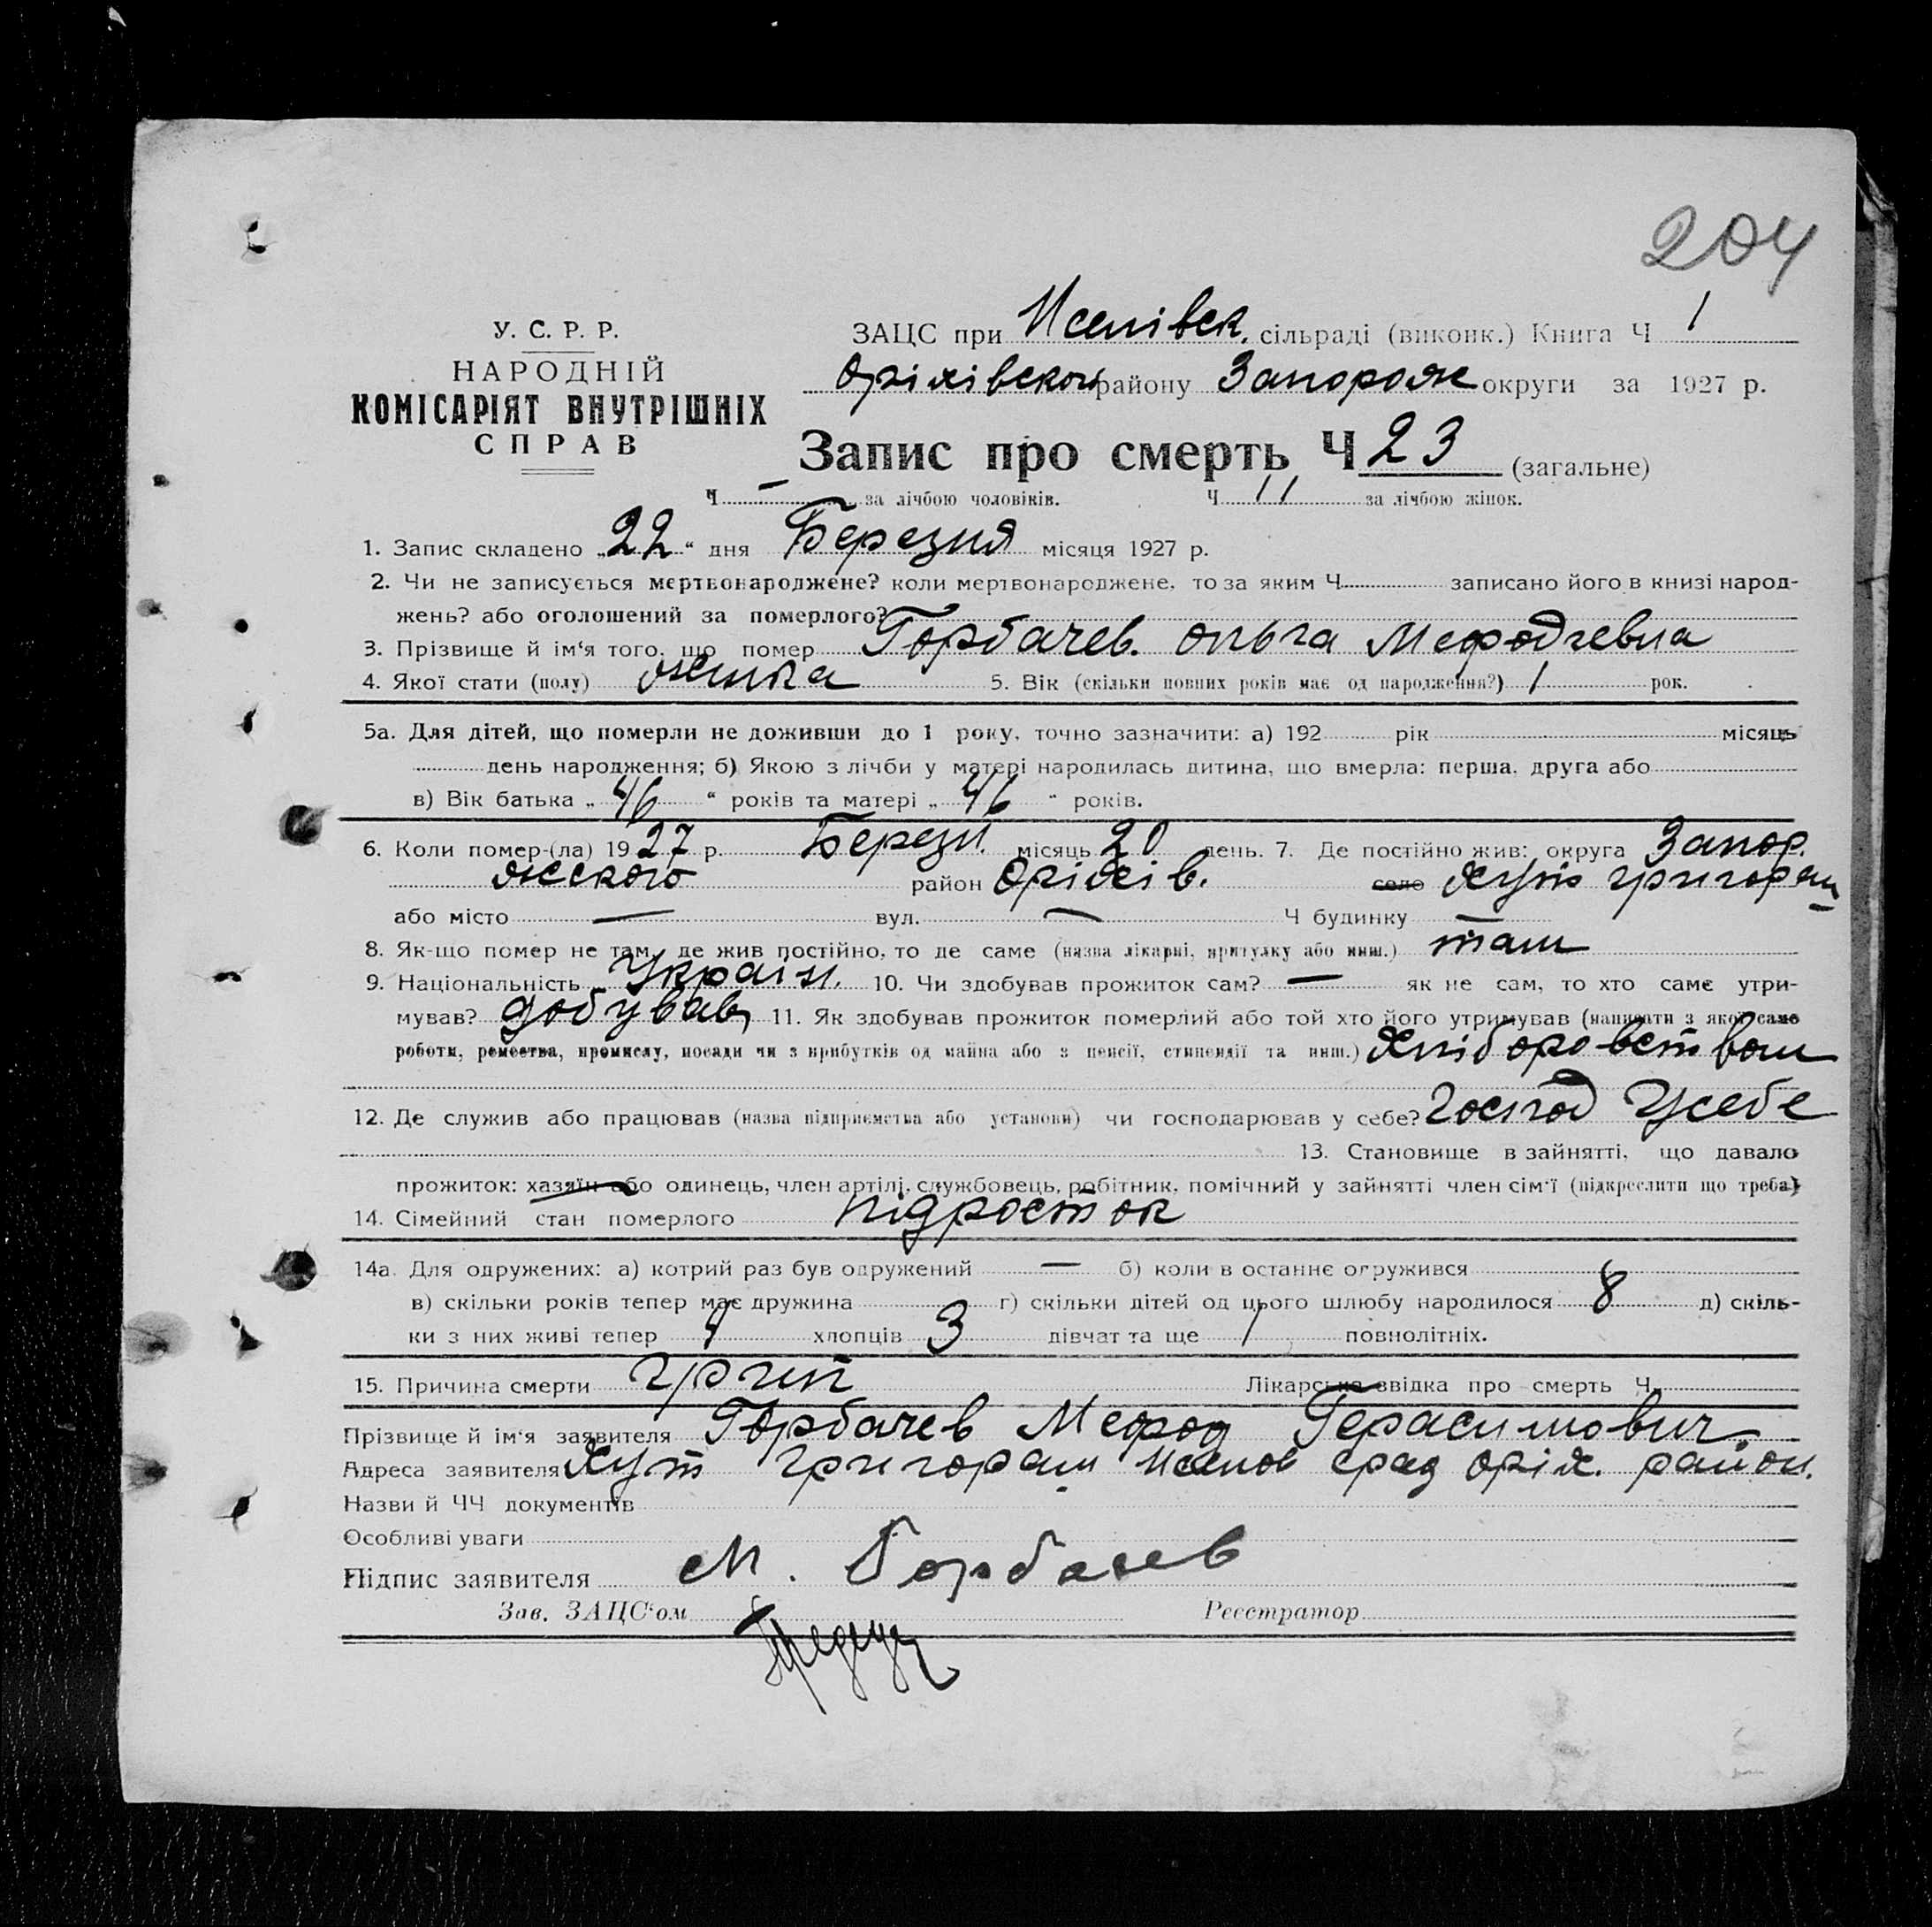 204
У. С. Р. Р.
НАРОДНІЙ
КОМІСАРІЯТ ВНУТРІШНІХ
СПРАВ
ЗАЦС при сільраді (виконк.) Книга Ч 1
Оріхівського району Запорож округи за 1927 р.
Запис про смерть Ч 23 (загальне)
Ч — за лічбою чоловіків. Ч 11 за лічбою жінок.
1. Запис складено „22“ дня Березня місяця 1927 р.
2. Чи не записується мертвонароджене? коли мертвонароджене, то за яким Ч записано його в книзі народ-
жень? або оголошений за померлого?
3. Прізвище й ім'я того, що помер Горбачев. Ольга Мефодіевна
4. Якої стати (полу) жінка 5. Вік (скільки повних років має од народження?) 1 рок.
5а. Для дітей, що померли не доживши до 1 року, точно зазначити: а) 192 рік місяць
день народження; б) Якою з лічби у матері народилась дитина, що вмерла: перша, друга або
в) Вік батька „46“ років та матері „46“ років.
6. Коли помер-(ла) 1927 р. Березн. місяць 20 день. 7. Де постійно жив: округа Запор.
жского район Оріхів. село хут Григорам
або місто — вул. — Ч будинку —
8. Як-що помер не там, де жив постійно, то де саме (назва лікарні, притулку або инш.) там
9. Національність Україн. 10. Чи здобував прожиток сам? — як не сам, то хто саме утри-
мував? добував 11. Як здобував прожиток померлий або той хто його утримував (написати з якої саме
роботи, ремества, промислу, посади чи з прибутків од майна або з пенсії, стипендії та инш.) Хліборовством
12. Де служив або працював (назва підприємства або установи) чи господарював у себе? Господ Усебе
13. Становище в зайнятті, що давало
прожиток: хазяїн або одинець, член артілі, службовець, робітник, помічний у зайнятті член сім'ї (підкреслити що треба)
14. Сімейний стан померлого підросток
14а. Для одружених: а) котрий раз був одружений — б) коли в останнє огружився
в) скільки років тепер має дружина г) скільки дітей од цього шлюбу народилося 8 д) скіль-
ки з них живі тепер 4 хлопців 3 дівчат та ще 1 повнолітніх.
15. Причина смерти грип Лікарська звідка про смерть Ч
Прізвище й ім'я заявителя Горбачев Мефод Герасимович
Адреса заявителя Хут Григорам срад Оріх. район.
Назви й ЧЧ документів
Особливі уваги
Підпис заявителя М. Горбачев
Зав. ЗАЦС'ом Реєстратор